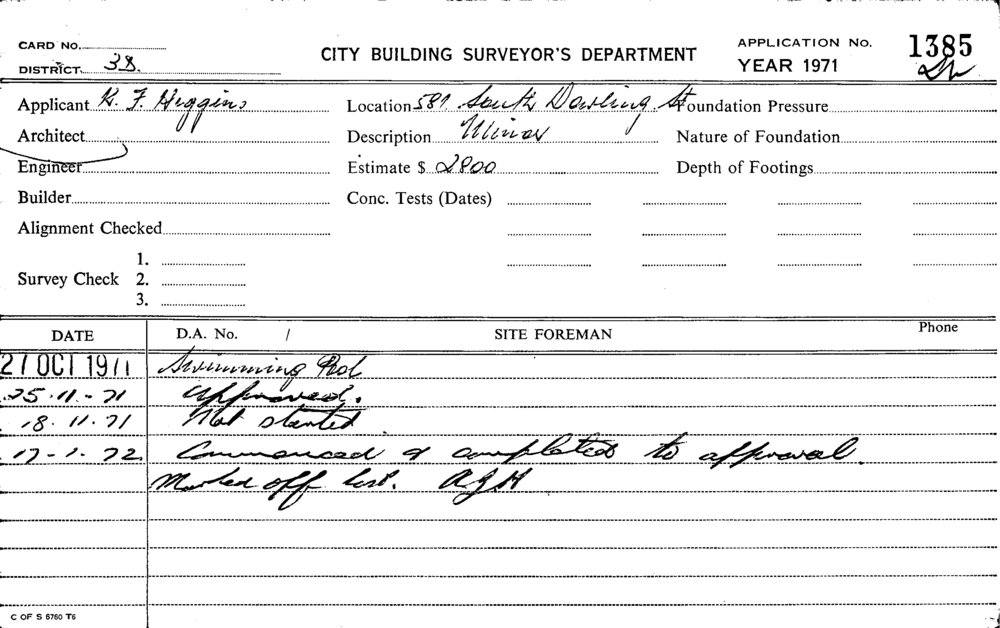 CARD No. CITY BUILDING SURVEYOR'S DEPARTMENT APPLICATION No. 1385
DISTRICT 38. YEAR 1971
Applicant K. F. Higgins Location 587 South Dowling St Foundation Pressure
Architect Description Minor Nature of Foundation
Engineer Estimate $ 2800 Depth of Footings
Builder Conc. Tests (Dates)
Alignment Checked
1.
Survey Check 2.
3.
DATE D.A. No. / SITE FOREMAN Phone
OCT 1971 Swimming Pool
25.11.-71 approved.
18.11.71 Not started
17-1.72. Commenced & completed to approval.
Marked off list. AJH
C OF S 6760 T6